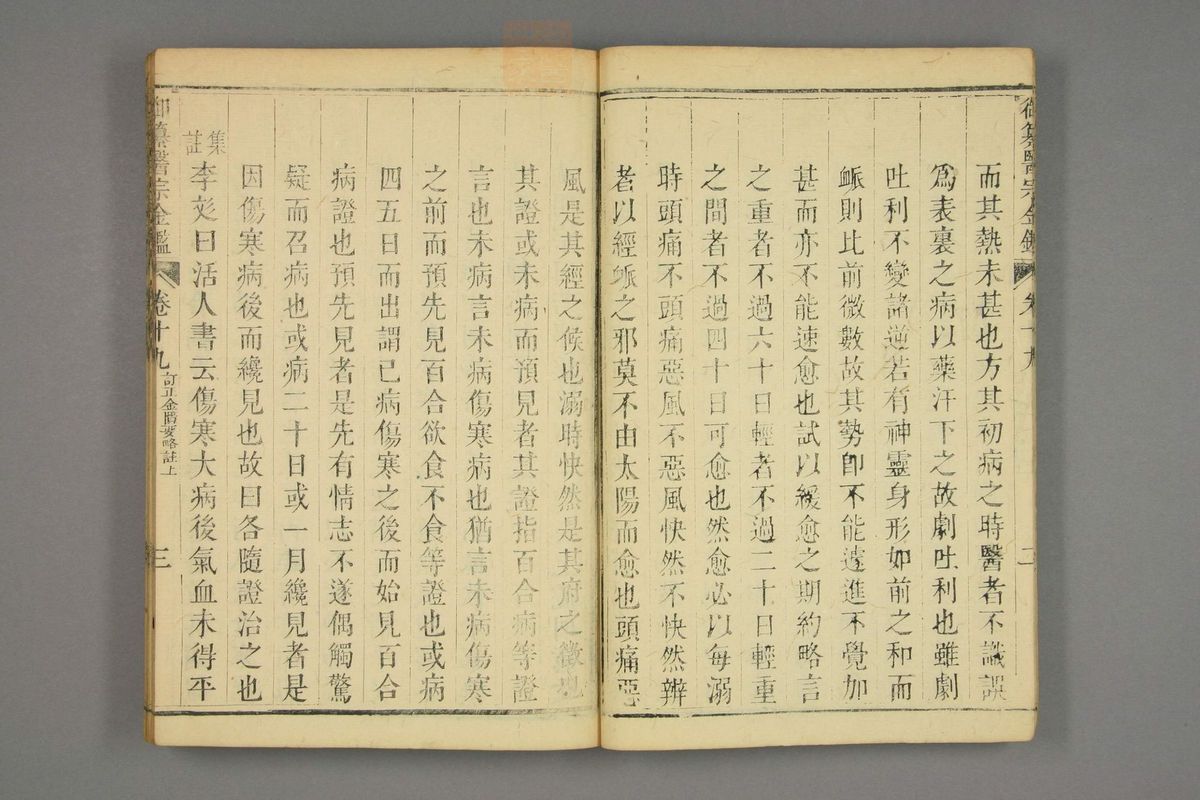 御纂醫宗金鑑 卷十九 二
而其熱未甚也方其初病之時醫者不識誤
爲表裏之病以藥汗下之故劇吐利也雖劇
吐利不變諸逆若有神靈身形如前之和而
脈則比前微數故其勢卽不能遽進不覺加
甚而亦不能速愈也試以緩愈之期約略言
之重者不過六十日輕者不過二十日輕重
之間者不過四十日可愈也然愈必以每溺
時頭痛不頭痛惡風不惡風快然不快然辨
者以經脈之邪莫不由太陽而愈也頭痛惡
風是其經之候也溺時快然是其府之徵也
其證或未病而預見者其證指百合病等證
言也未病言未病傷寒病也猶言未病傷寒
之前而預先見百合欲食不食等證也或病
四五日而出謂已病傷寒之後而始見百合
病證也預先見者是先有情志不遂偶觸驚
疑而召病也或病二十日或一月纔見者是
因傷寒病後而纔見也故曰各隨證治之也
集註 李彣曰活人書云傷寒大病後氣血未得平
御纂醫宗金鑑 卷十九 訂正金匱要略註上 三